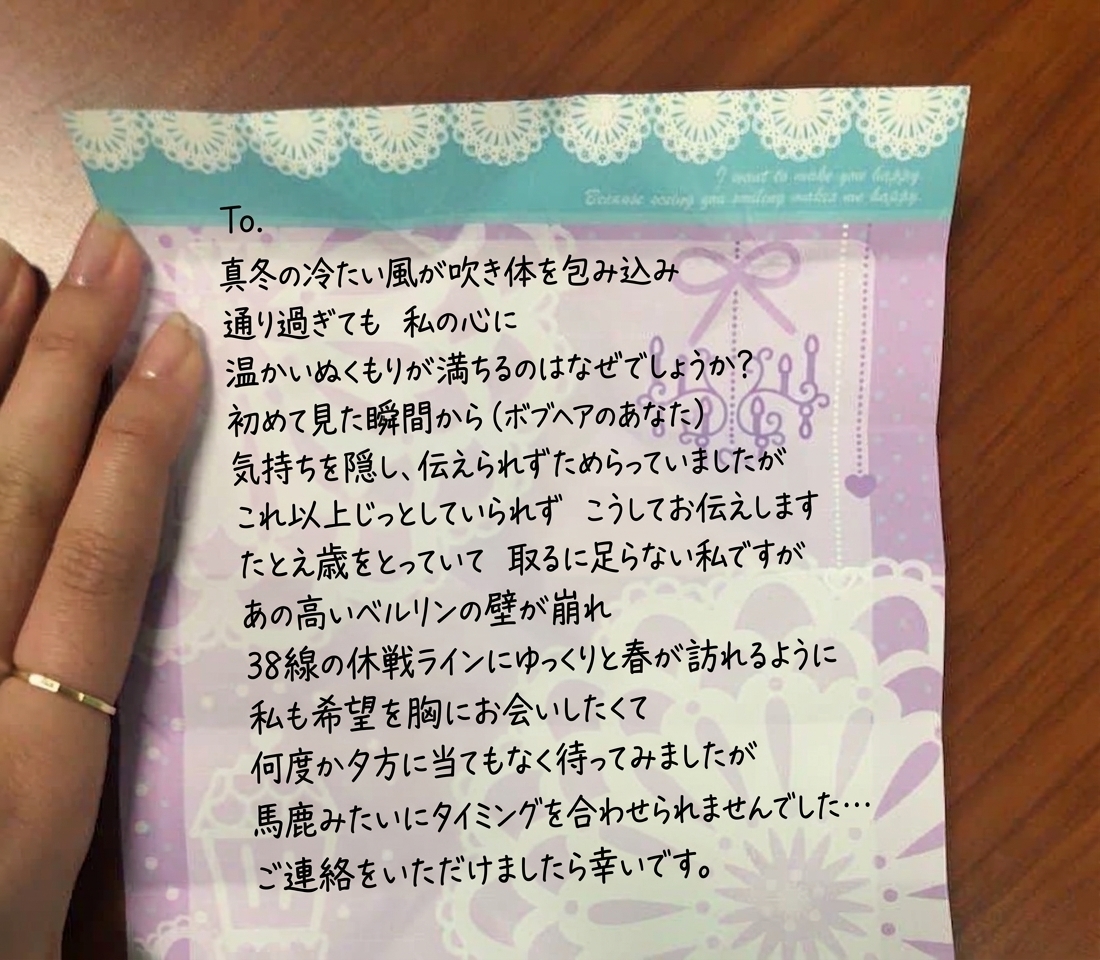 I want to make you happy.
Because seeing you smiling makes me happy.
To.
真冬の冷たい風が吹き体を包み込み
通り過ぎても 私の心に
温かいぬくもりが満ちるのはなぜでしょうか?
初めて見た瞬間から(ボブヘアのあなた)
気持ちを隠し、伝えられずためらっていましたが
これ以上じっとしていられず こうしてお伝えします
たとえ歳をとっていて 取るに足らない私ですが
あの高いベルリンの壁が崩れ
38線の休戦ラインにゆっくりと春が訪れるように
私も希望を胸にお会いしたくて
何度か夕方に当てもなく待ってみましたが
馬鹿みたいにタイミングを合わせられませんでした…
ご連絡をいただけましたら幸いです。